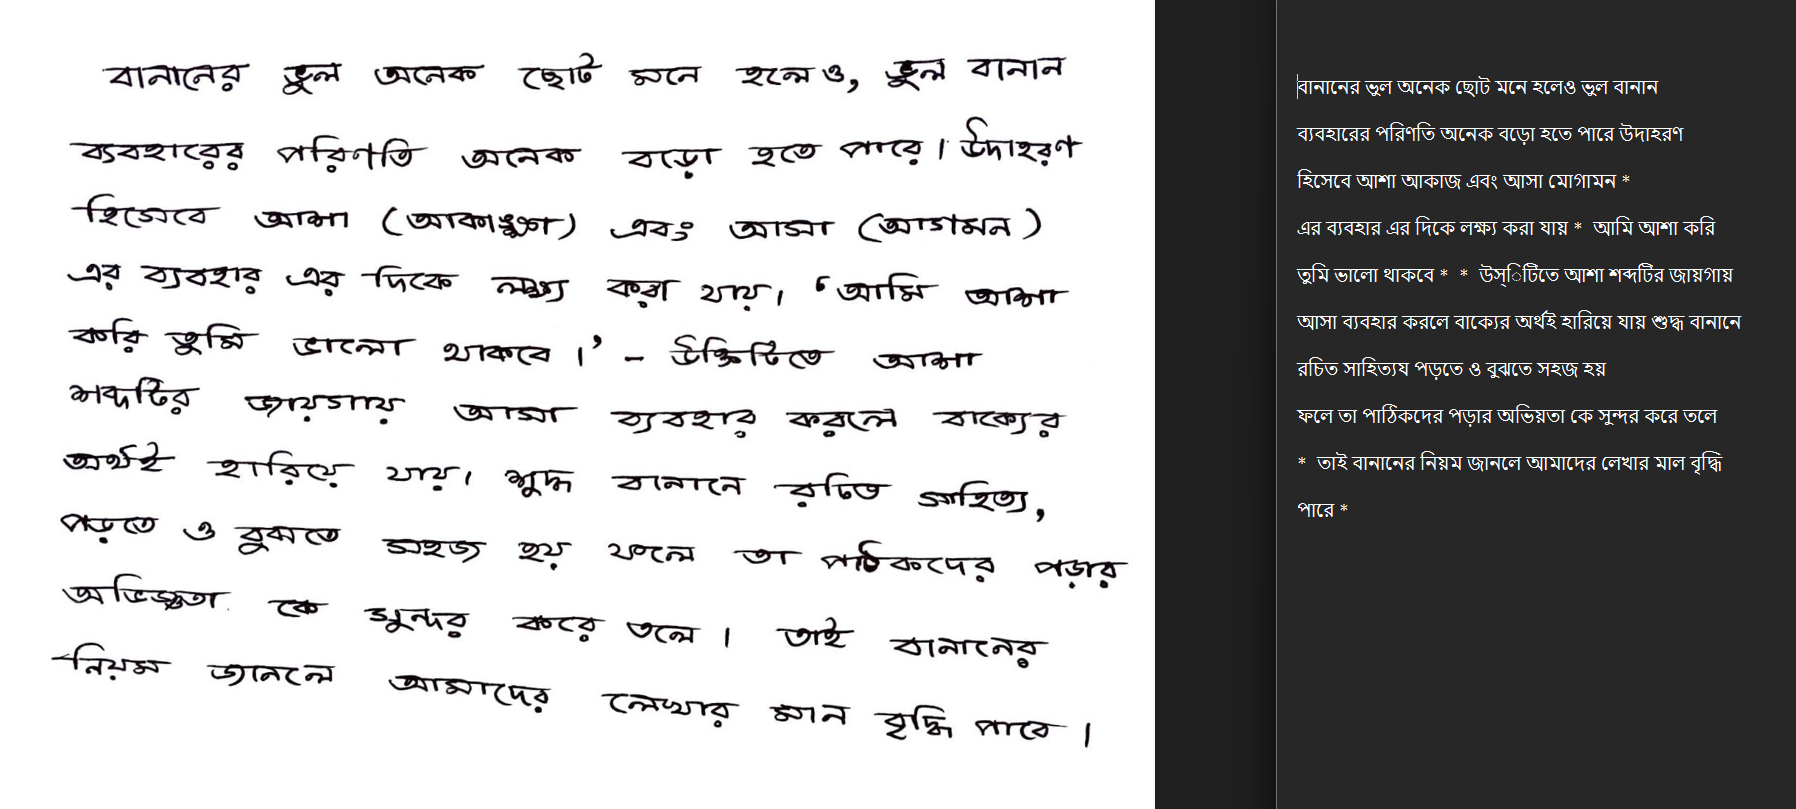 বানানের ভুল অনেক ছোট মনে হলেও, ভুল বানান
ব্যবহারের পরিণতি অনেক বড়ো হতে পারে। উদাহরণ
হিসেবে আশা (আকাঙ্ক্ষা) এবং আসা (আগমন)
এর ব্যবহার এর দিকে লক্ষ্য করা যায়। ‘আমি আশা
করি তুমি ভালো থাকবে।’ - উক্তিটিতে আশা
শব্দটির জায়গায় আসা ব্যবহার করলে বাক্যের
অর্থই হারিয়ে যায়। শুদ্ধ বানানে রচিত সাহিত্য,
পড়তে ও বুঝতে সহজ হয় ফলে তা পাঠকদের পড়ার
অভিজ্ঞতা কে সুন্দর করে তলে। তাই বানানের
নিয়ম জানলে আমাদের লেখার মান বৃদ্ধি পাবে।
বানানের ভুল অনেক ছোট মনে হলেও ভুল বানান
ব্যবহারের পরিণতি অনেক বড়ো হতে পারে উদাহরণ
হিসেবে আশা আকাজ এবং আসা মোগামন *
এর ব্যবহার এর দিকে লক্ষ্য করা যায় * আমি আশা করি
তুমি ভালো থাকবে * * উস্িটিতে আশা শব্দটির জায়গায়
আসা ব্যবহার করলে বাক্যের অর্থই হারিয়ে যায় শুদ্ধ বানানে
রচিত সাহিত্যয পড়তে ও বুঝতে সহজ হয়
ফলে তা পাঠিকদের পড়ার অভিয়তা কে সুন্দর করে তলে
* তাই বানানের নিয়ম জানলে আমাদের লেখার মাল বৃদ্ধি
পারে *